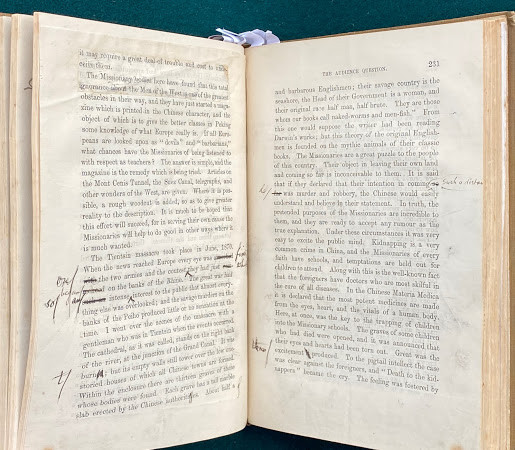 it may require a great deal of trouble and cost to undeceive them.
The Missionary bodies here have found that this total
ignorance about the Men of the West is one of the greatest
obstacles in their way, and they have just started a maga-
zine which is printed in the Chinese character, and the
object of which is to give the better classes in Pekin
some knowledge of what Europe really is. If all Euro-
peans are looked upon as "devils" and "barbarians,"
what chances have the Missionaries of being listened to
with respect as teachers? The answer is simple, and the
magazine is the remedy which is being tried. Articles on
the Mont Cenis Tunnel, the Suez Canal, telegraphs, and
other wonders of the West, are given. Where it is pos-
sible, a rough woodcut is added, so as to give greater
reality to the description. It is much to be hoped that
this effort will succeed, for in serving their own cause the
Missionaries will help to do good in other ways where it
is much wanted.
The Tientsin massacre took place in June, 1870.
When the news reached Europe every eye was
the two armies and the contest they had just
on the banks of the Rhine. The great war had
intense interest to the public that almost every-
thing else was overlooked; and the savage strife on the
banks of the Peiho produced little or no sensation at the
time. I went over the scenes of the massacre with a
gentleman who was in Tientsin when the events occurred.
The cathedral, as it was called, stands on the right bank
of the river, at the junction of the Grand Canal. It was
burnt, but its empty walls still tower over the low one-
storied houses of which all Chinese towns are formed.
Within the enclosure are thirteen graves of those
whose bodies were found. Each grave has a tall marble
slab erected by the Chinese authorities. About half a
THE AUDIENCE QUESTION. 231
and barbarous Englishmen; their savage country is the
seashore, the Head of their Government is a woman, and
their original race half man, half brute. They are those
whom our books call naked-worms and men-fish." From
this one would suppose the writer had been reading
Darwin's works; but this theory of the original English-
men is founded on the mythic animals of their classic
books. The Missionaries are a great puzzle to the people
of this country. Their object in leaving their own land
and coming so far is inconceivable to them. It is said
that if they declared that their intention in coming
was murder and robbery, the Chinese would easily
understand and believe in their statement. In truth, the
pretended purposes of the Missionaries are incredible to
them, and they are ready to accept any rumour as the
true explanation. Under these circumstances it was very
easy to excite the public mind. Kidnapping is a very
common crime in China, and the Missionaries of every
faith have schools, and temptations are held out for
children to attend. Along with this is the well-known fact
that the foreigners have doctors who are most skilful in
the cure of all diseases. In the Chinese Materia Medica
it is declared that the most potent medicines are made
from the eyes, heart, and the vitals of a human body.
Here, at once, was the key to the trapping of children
into the Missionary schools. The graves of some children
who had died were opened, and it was announced that
their eyes and hearts had been torn out. Great was the
excitement produced. To the pigtail intellect the case
was clear against the foreigners, and "Death to the kid-
nappers" became the cry. The feeling was fostered by